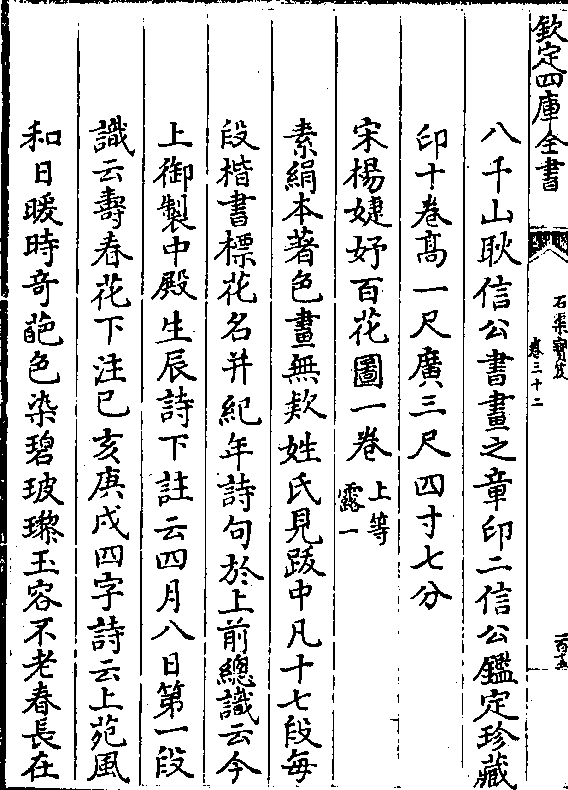 欽定四庫全書
石渠寶笈
卷三十二
八千山耿信公書畫之章印二信公鑑定珍藏
印十卷髙一尺廣三尺四寸七分
宋楊婕妤百花圖一卷
上等
露一
素絹本著色畫無款姓氏見跋中凡十七段每
段楷書標花名并紀年詩句於上前總識云今
上御製中殿生辰詩下註云四月八日第一段
識云壽春花下注已亥庚戌四字詩云上苑風
和日暖時竒葩色染碧玻瓈玉容不老春長在